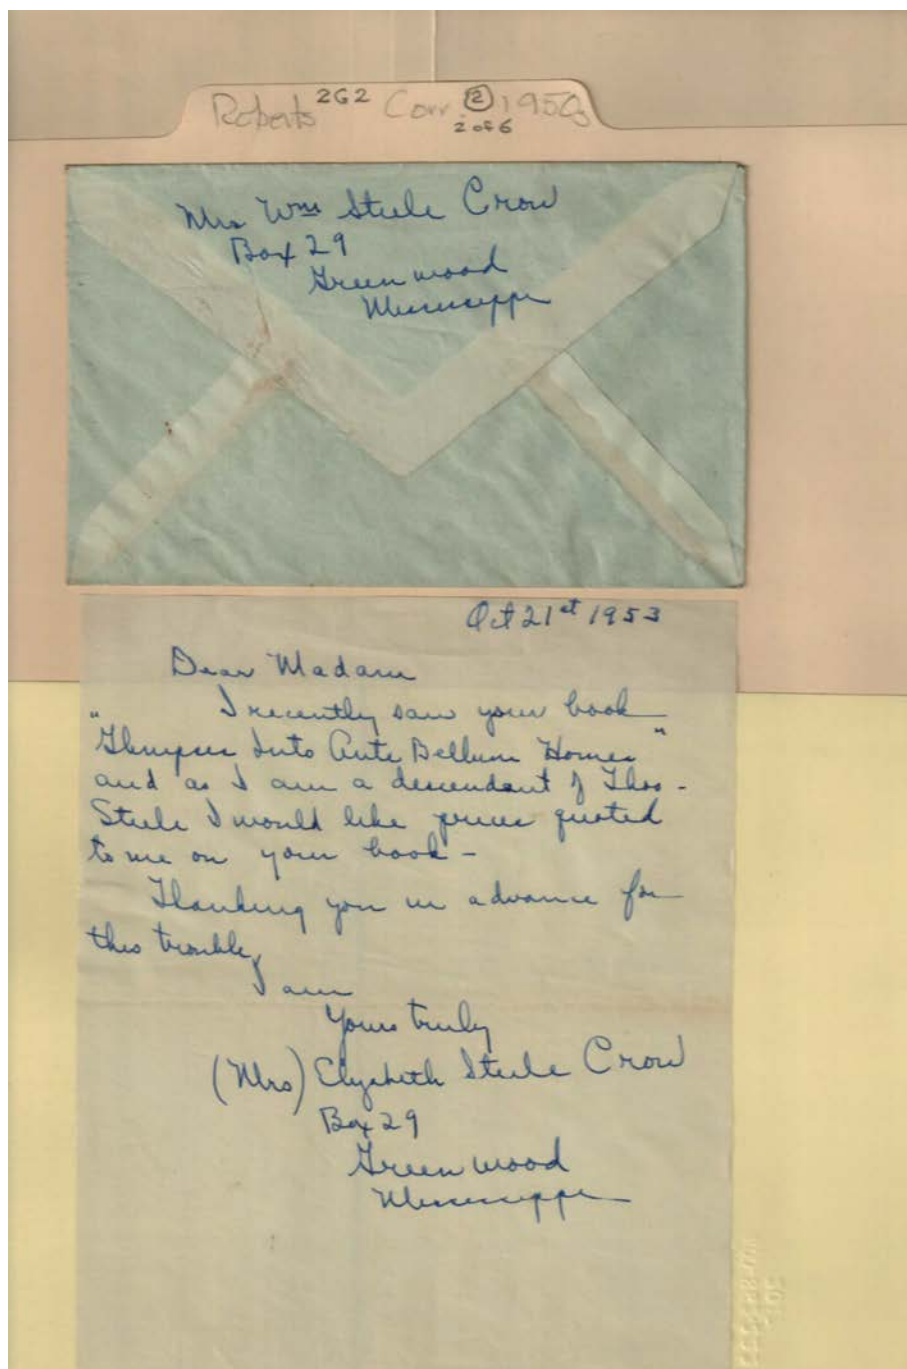 Roberts 2G2 Corr. ② 1950s
2 of 6
Mrs Wm Steele Crow
Box 29
Greenwood
Mississippi
Oct 21st 1953
Dear Madam
I recently saw your book
"Glimpses Into Ante Bellum Homes"
and as I am a descendant of Thos-
Steele I would like prices quoted
to me on your book-
Thanking you in advance for
this trouble,
I am
Yours truly
(Mrs) Elyzabeth Steele Crow
Box 29
Greenwood
Mississippi